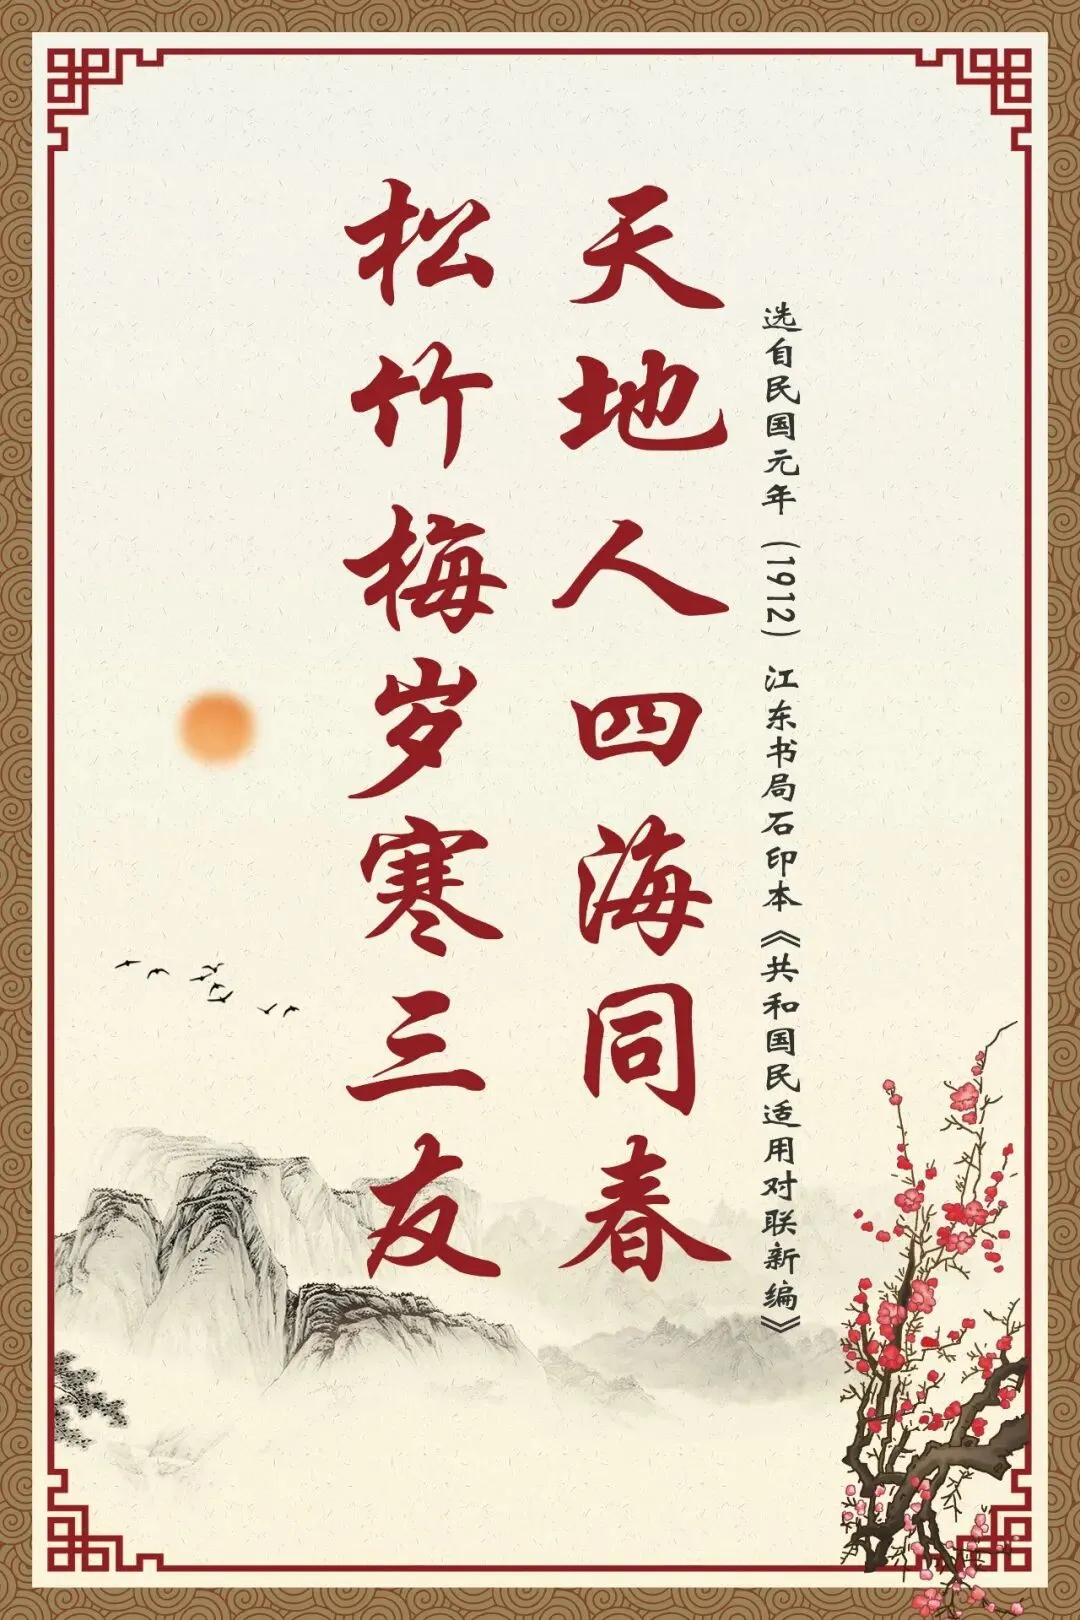 选自民国元年（1912）江东书局石印本《共和国民适用对联新编》
天地人四海同春
松竹梅岁寒三友